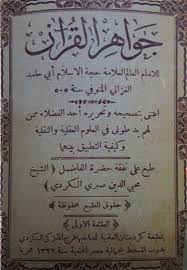 جواهر القرآن
للامام العالم العلامة حجة الاسلام أبي حامد
الغزالي المتوفي سنة ٥٠٥
اعتنى بتصحيحه وتحريره أحد الفضلاء ممن
لهم يد طولى في العلوم العقلية والنقلية
وكيفية التطبيق بينهما
طبع على نفقة حضرة الفاضل الشيخ
محيي الدين صبري الكردي
حقوق الطبع محفوظة
الطبعة الاولى
بمطبعة كردستان العلمية لصاحبها فرج الله زكي الكردي
سنة